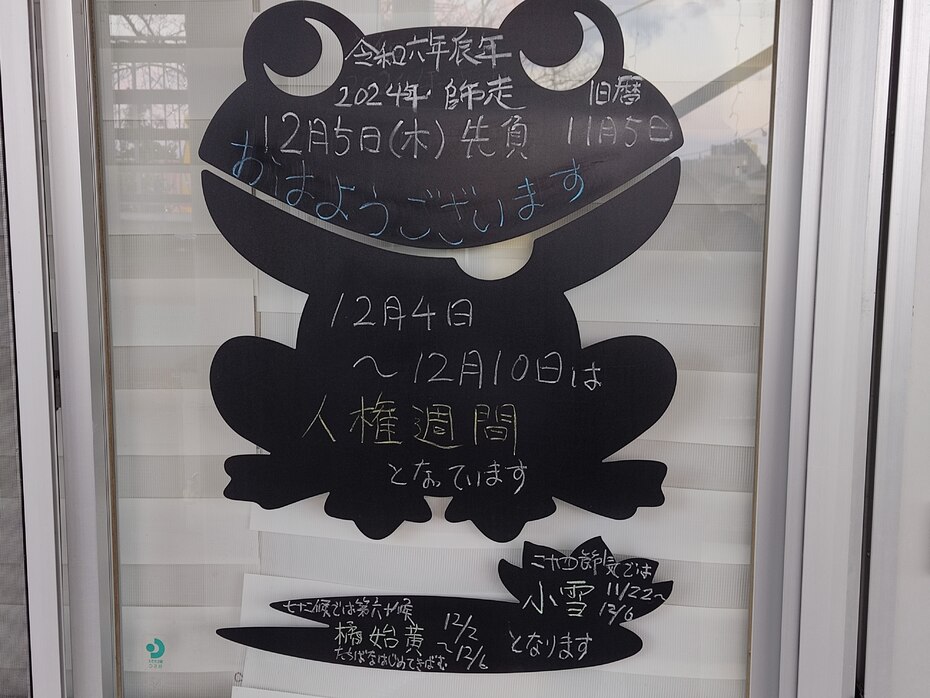 令和六年辰年
2024年 師走 旧暦
12月5日(木) 先負 11月5日
おはようございます
12月4日
〜12月10日は
人権週間
となっています
二十四節気では
小雪 11/22〜12/6
七十二候では第六十候
橘始黄 12/2〜12/6 となります
たちばなはじめてきばむ